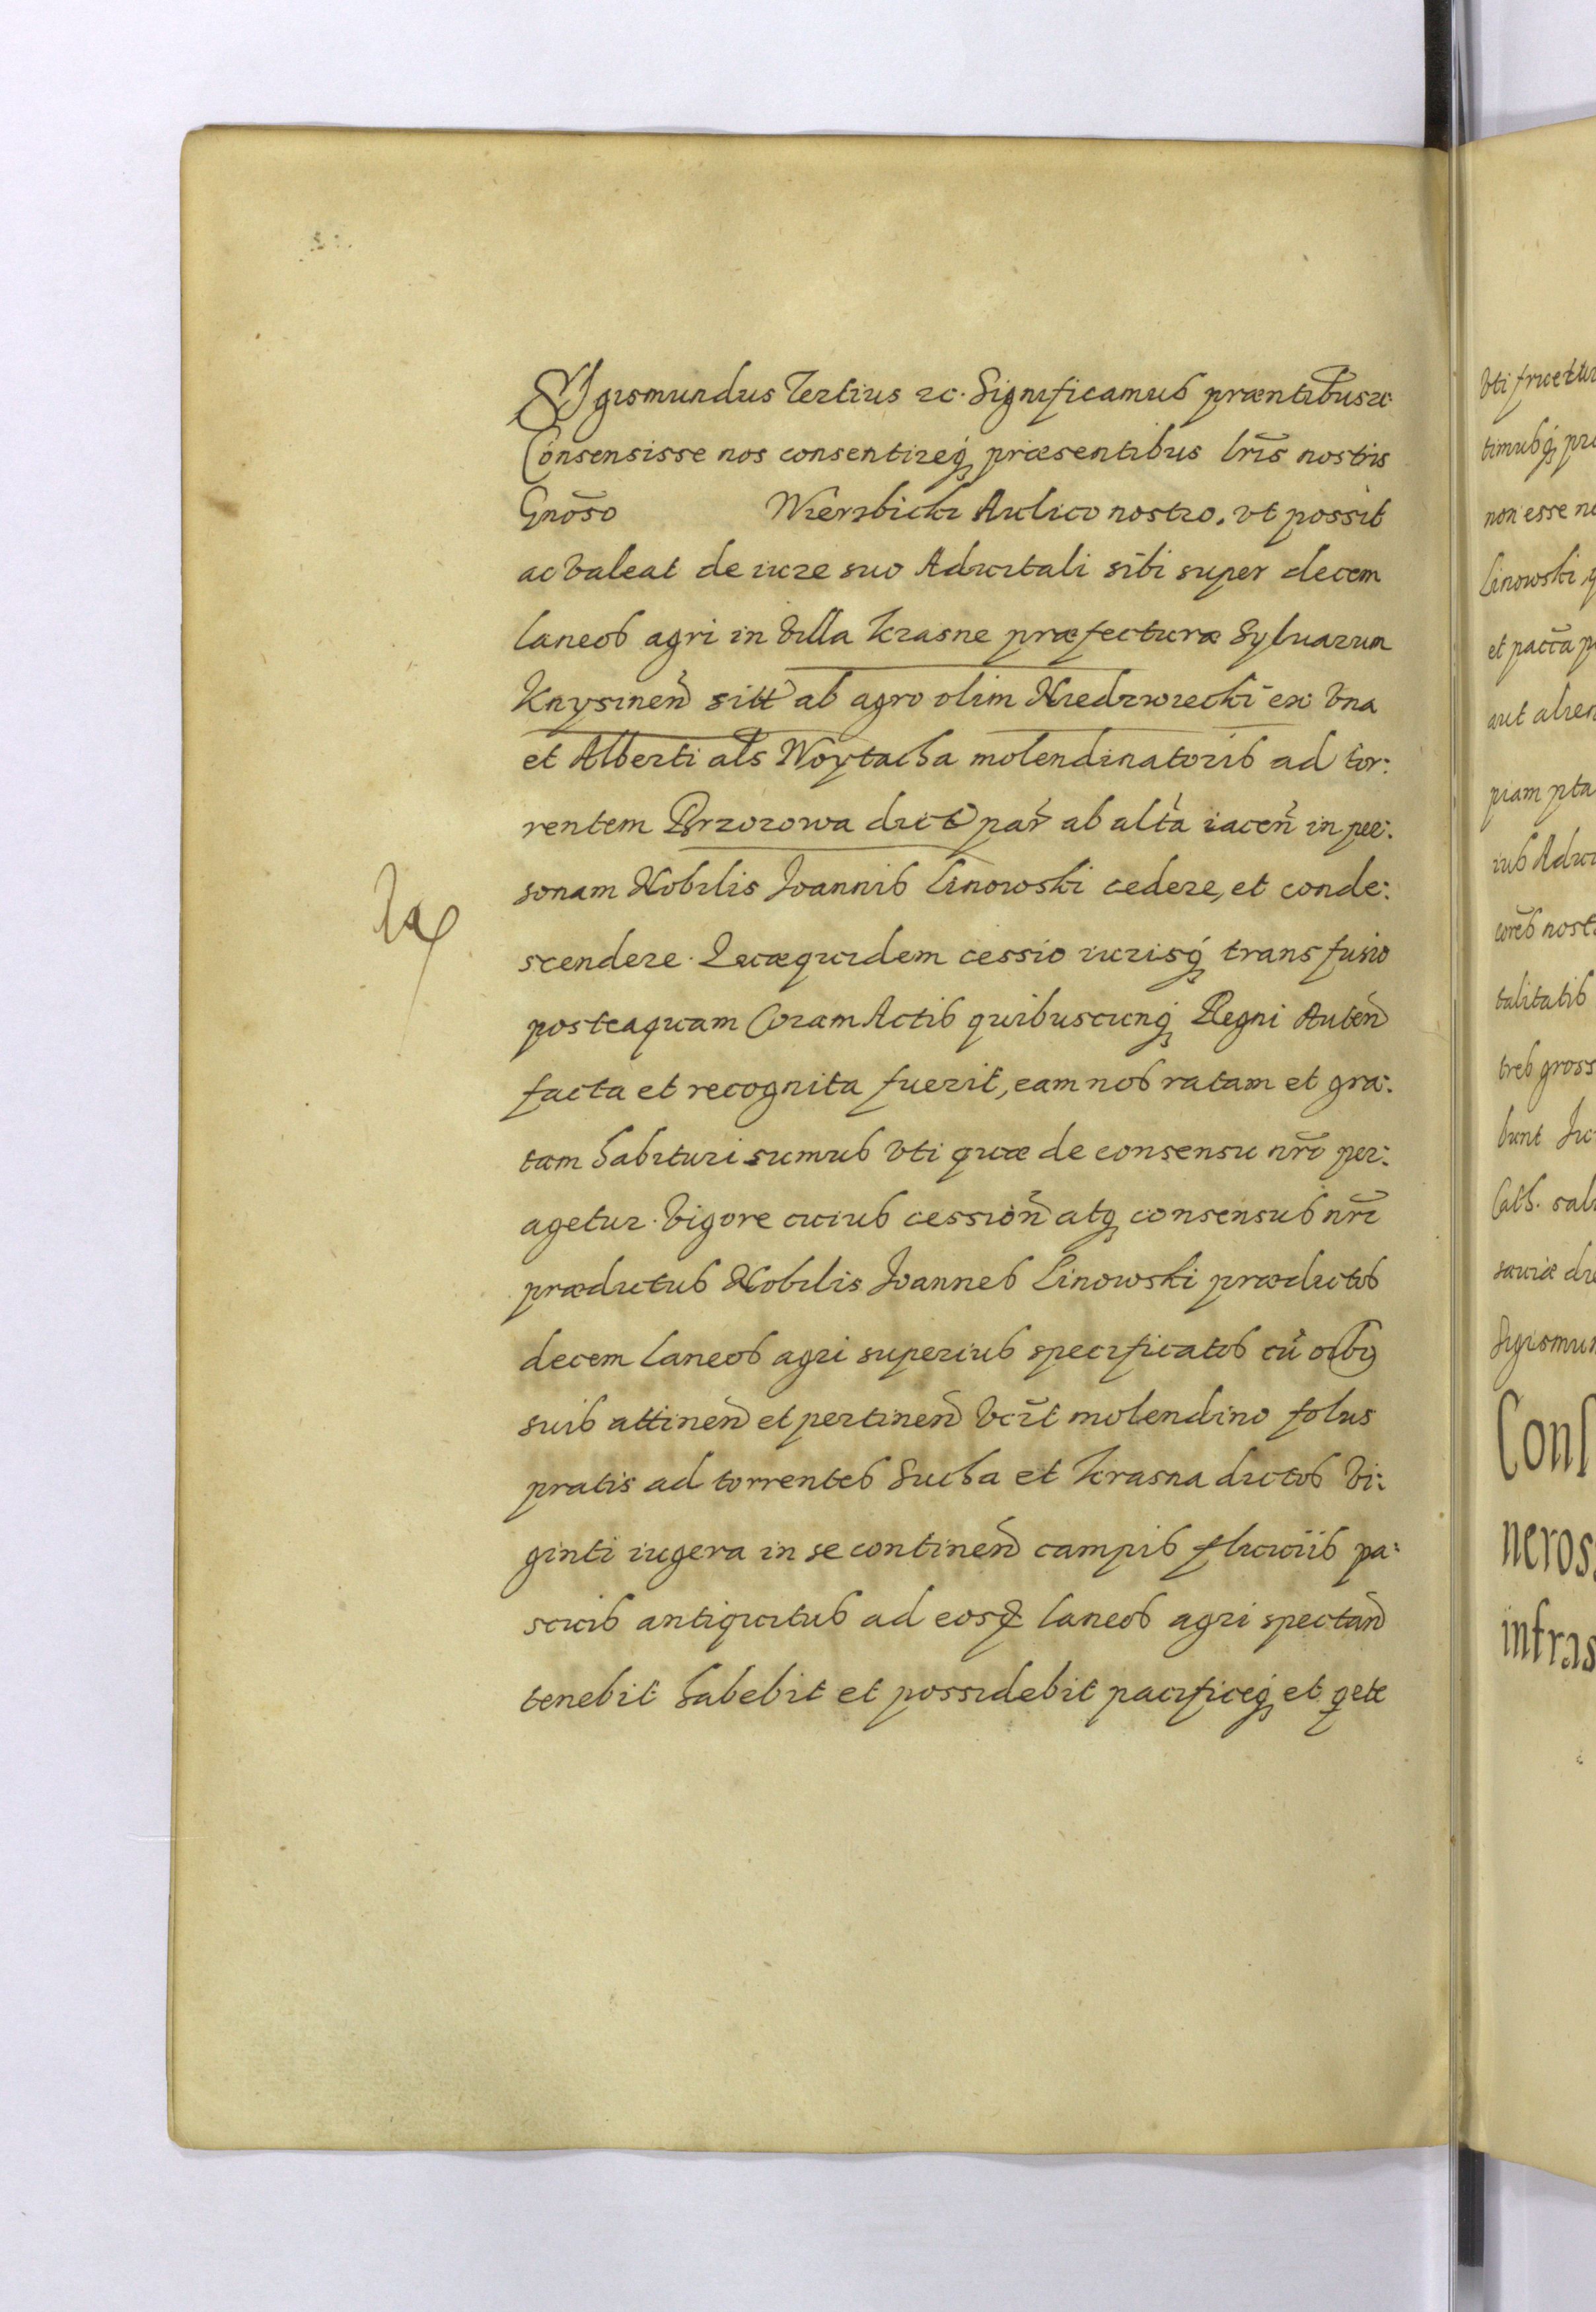 Sigismundus Tertius ec. Significamus præntibus ec.
Consensisse nos consentireq́ præsentibus lr̃is nostris
Gnõso Wierzbicki Aulico nostro, vt possit
ac valeat de iure suo Aduitali sibi super decem
laneos agri in Villa Krasne præfecturæ Syluarum
Knysinen̄ sitt ab agro olim Niedzwiecki ex vna
et Alberti als Woytacha molendinatoris ad tor:
rentem Brzozowa dict par̄ ab altr̀a iacen̄ in per:
sonam Nobilis Joannis Linowski cedere, et conde:
scendere. Quæquidem cessio iurisq́ transfusio
posteaquam Coram Actis quibuscunq́ Regni Auten̄
facta et recognita fuerit, eam nos ratam et gra:
tam habituri sumus vti quæ de consensu nr̃o per:
agetur. Vigore cuius cession̄ atq́ consensus nr̃i
prædictus Nobilis Joannes Linowski prædictos
decem laneos agri superius specificatos cū oibꝫ
suis attinen̄ et pertinen̄ vc̃it molendino folus
pratis ad torrentes Sucha et Krasna dictos vi:
ginti iugera in se continen̄ campis fluuiis pa:
scuis antiquitus ad eosd laneos agri spectan̄
tenebit habebit et possidebit pacificeq́ et qete
vti fruetur
timusq́
non esse
Linowski
et
piam
cores nost
talitatis
tres gross
bunt
Cath. sal
Sigismun
Cons
neros
infras